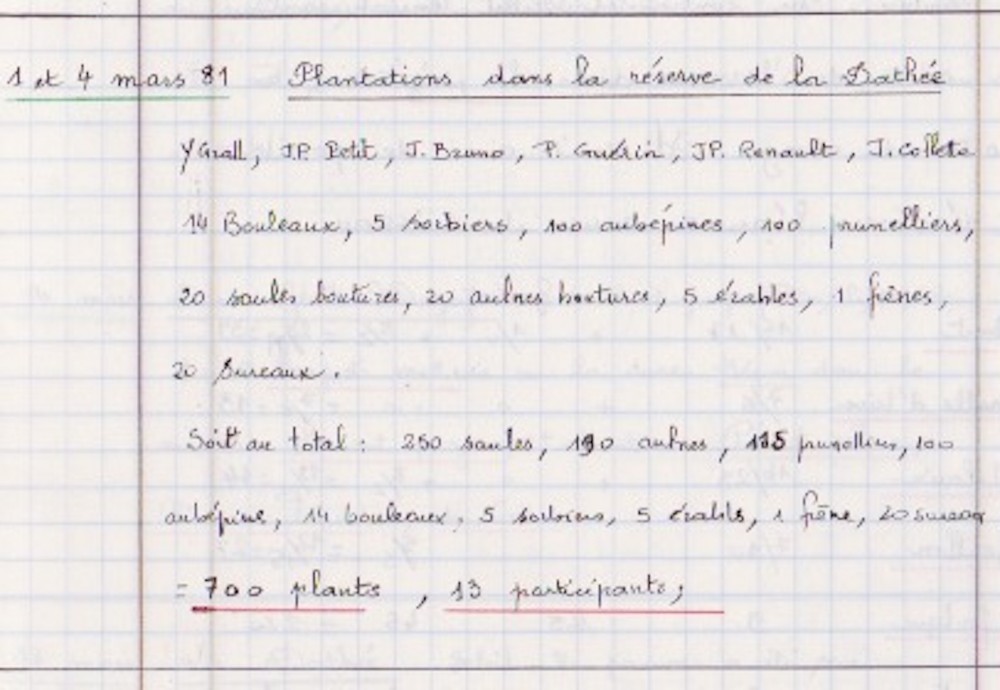 1 et 4 mars 81 Plantations dans la réserve de la Dathée
Y Grall, J.P. Petit, J. Bruno, P. Guérin, JP. Renault, J. Collette
14 Bouleaux, 5 sorbiers, 100 aubépines, 100 prunelliers,
20 saules boutures, 20 aulnes boutures, 5 érables, 1 frênes,
20 Sureaux.
Soit au total : 250 saules, 190 aulnes, 115 prunelliers, 100
aubépine, 14 bouleaux, 5 sorbiers, 5 érables, 1 frêne, 20 sureaux
= 700 plants, 13 participants;